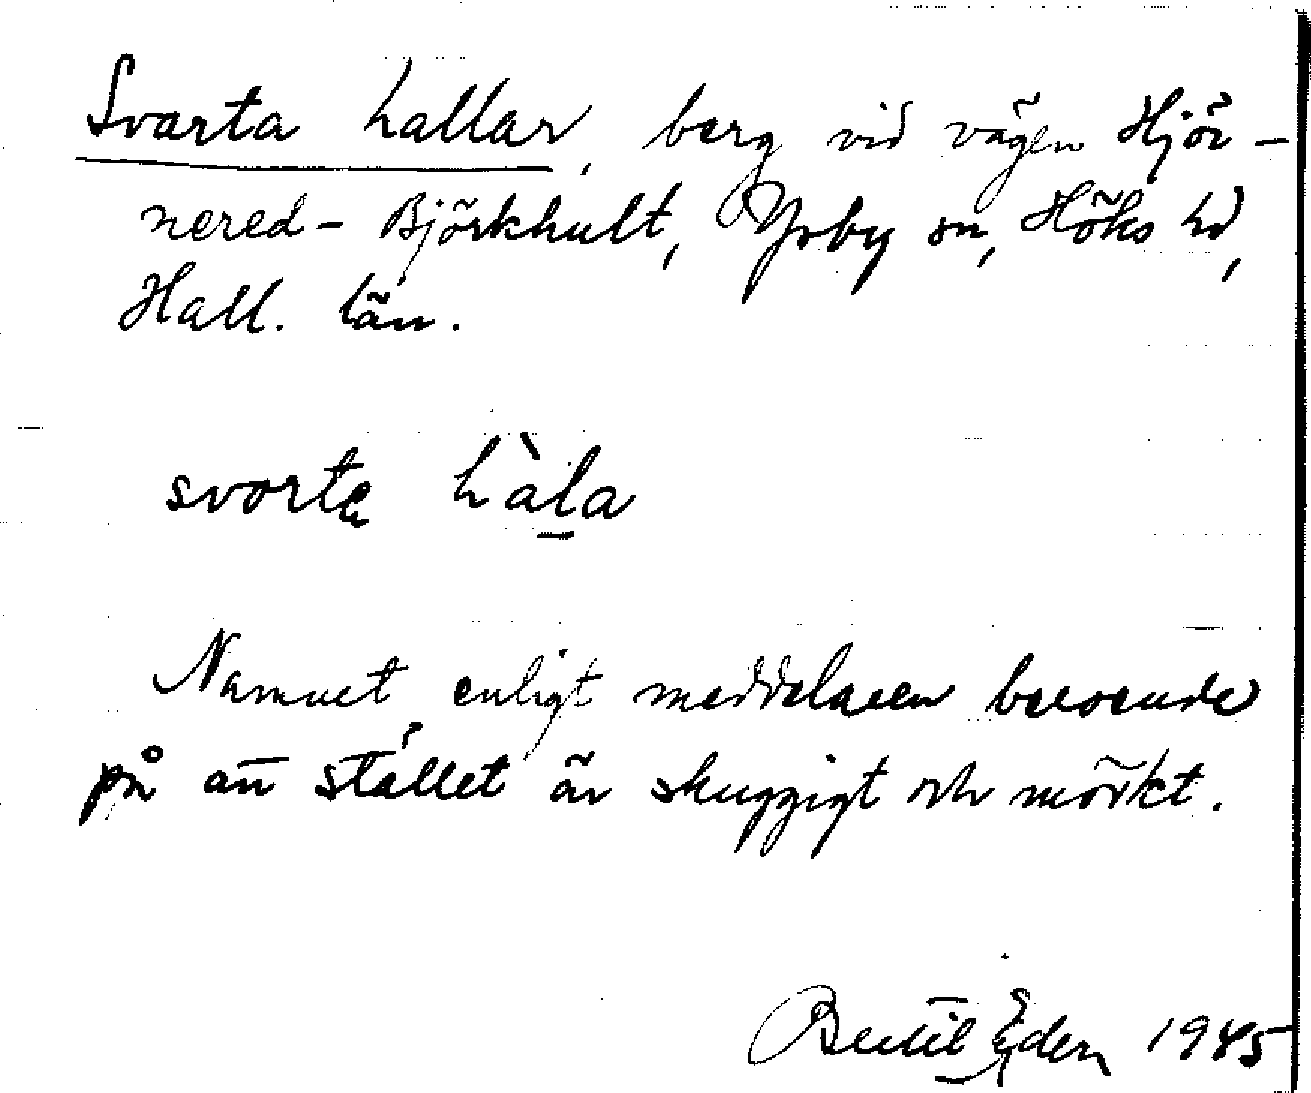 Svarta hallar, berg vid vägen Hjör-
nered - Björkhult, Ysby sn, Höks hd,
Hall. län.
svorta hàla
Namnet enligt meddelaren beroende
på att stället är skuggigt och mörkt.
Bertil Eden 1945